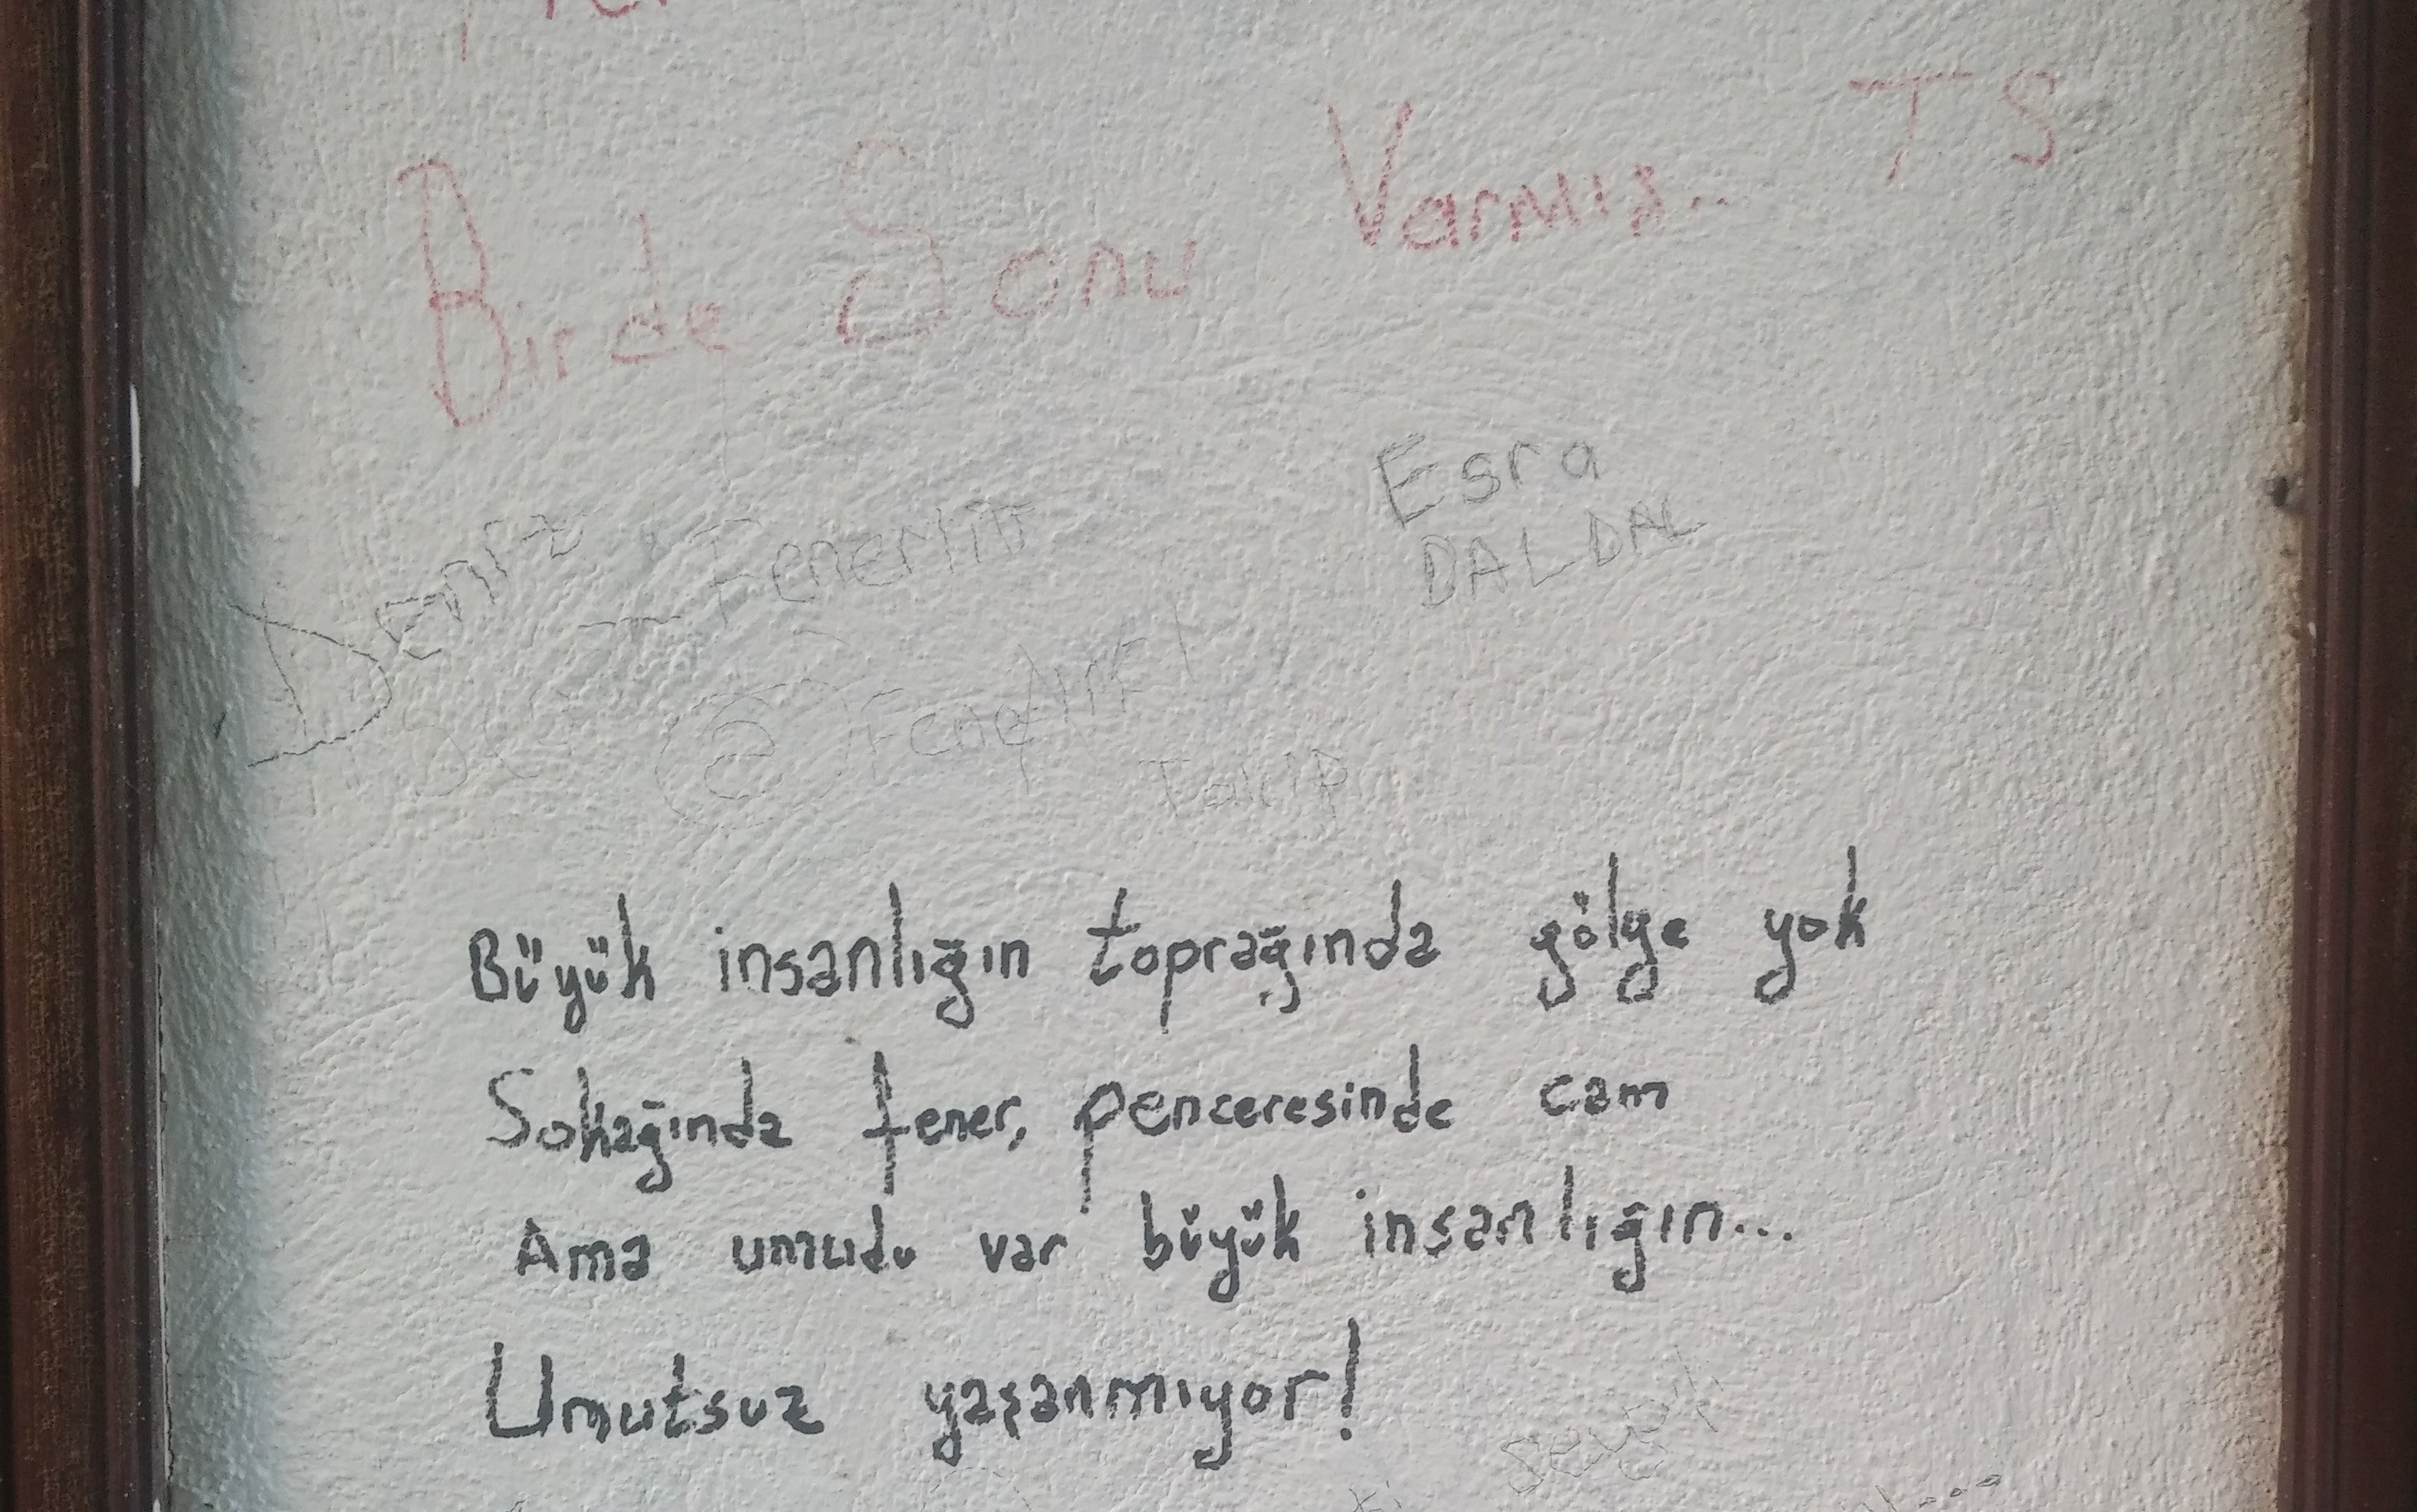 Birde Sonu Varmış.. T S
Esra
DALDAL
Deniz
Takip
Büyük insanlığın toprağında gölge yok
Sokağında fener, penceresinde cam
Ama umudu var büyük insanlığın...
Umutsuz yaşanmıyor!